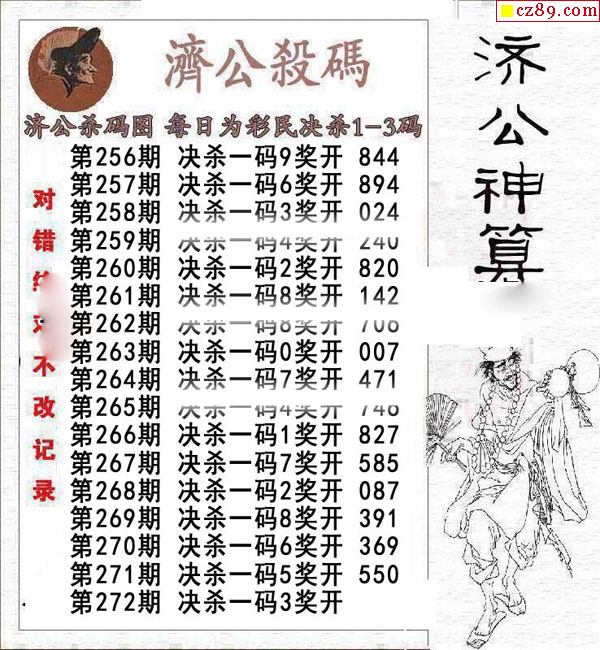 cz89.com
濟公殺碼
济公杀码图 每日为彩民决杀1-3码
第256期 决杀一码9奖开 844
第257期 决杀一码6奖开 894
第258期 决杀一码3奖开 024
第259期 决杀一码4奖开 240
第260期 决杀一码2奖开 820
第261期 决杀一码8奖开 142
第262期 决杀一码8奖开 706
第263期 决杀一码0奖开 007
第264期 决杀一码7奖开 471
第265期 决杀一码4奖开 746
第266期 决杀一码1奖开 827
第267期 决杀一码7奖开 585
第268期 决杀一码2奖开 087
第269期 决杀一码8奖开 391
第270期 决杀一码6奖开 369
第271期 决杀一码5奖开 550
第272期 决杀一码3奖开
对错
不改记录
济公神算